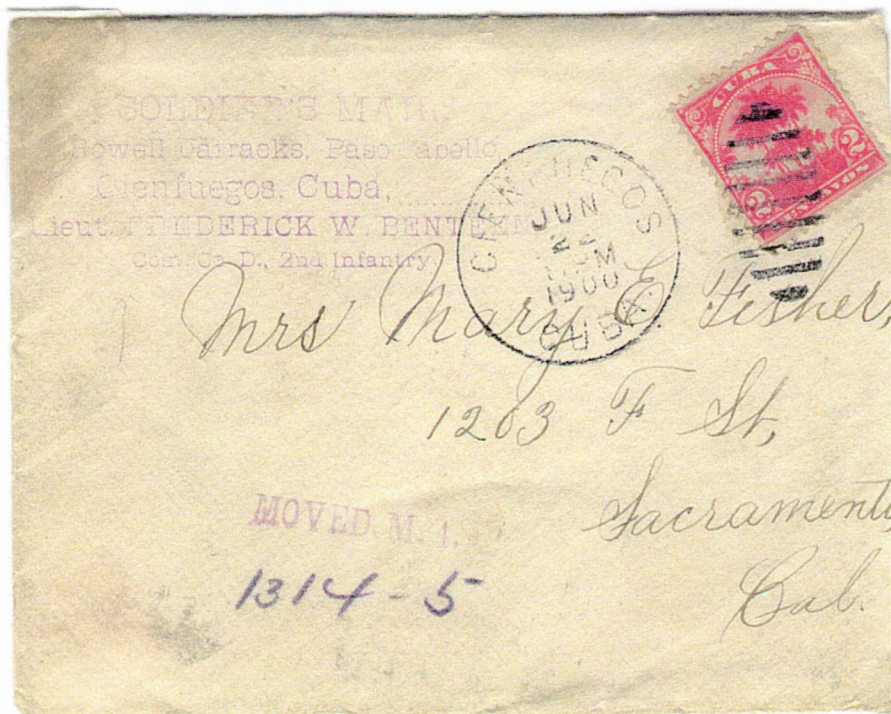 SOLDIER'S MAIL
Howell Barracks, Paso
Cienfuegos, Cuba,
Lieut. FREDERICK W BENTEEN
Com. Co. D., 2nd Infantry
CUBA
2 2
CENTAVOS
CIENFUEGOS
JUN
M
1900
CUBA.
Mrs Mary E Fisher,
1203 F St,
Sacramento
Cal.
MOVED. M. 1.
1314 - 5